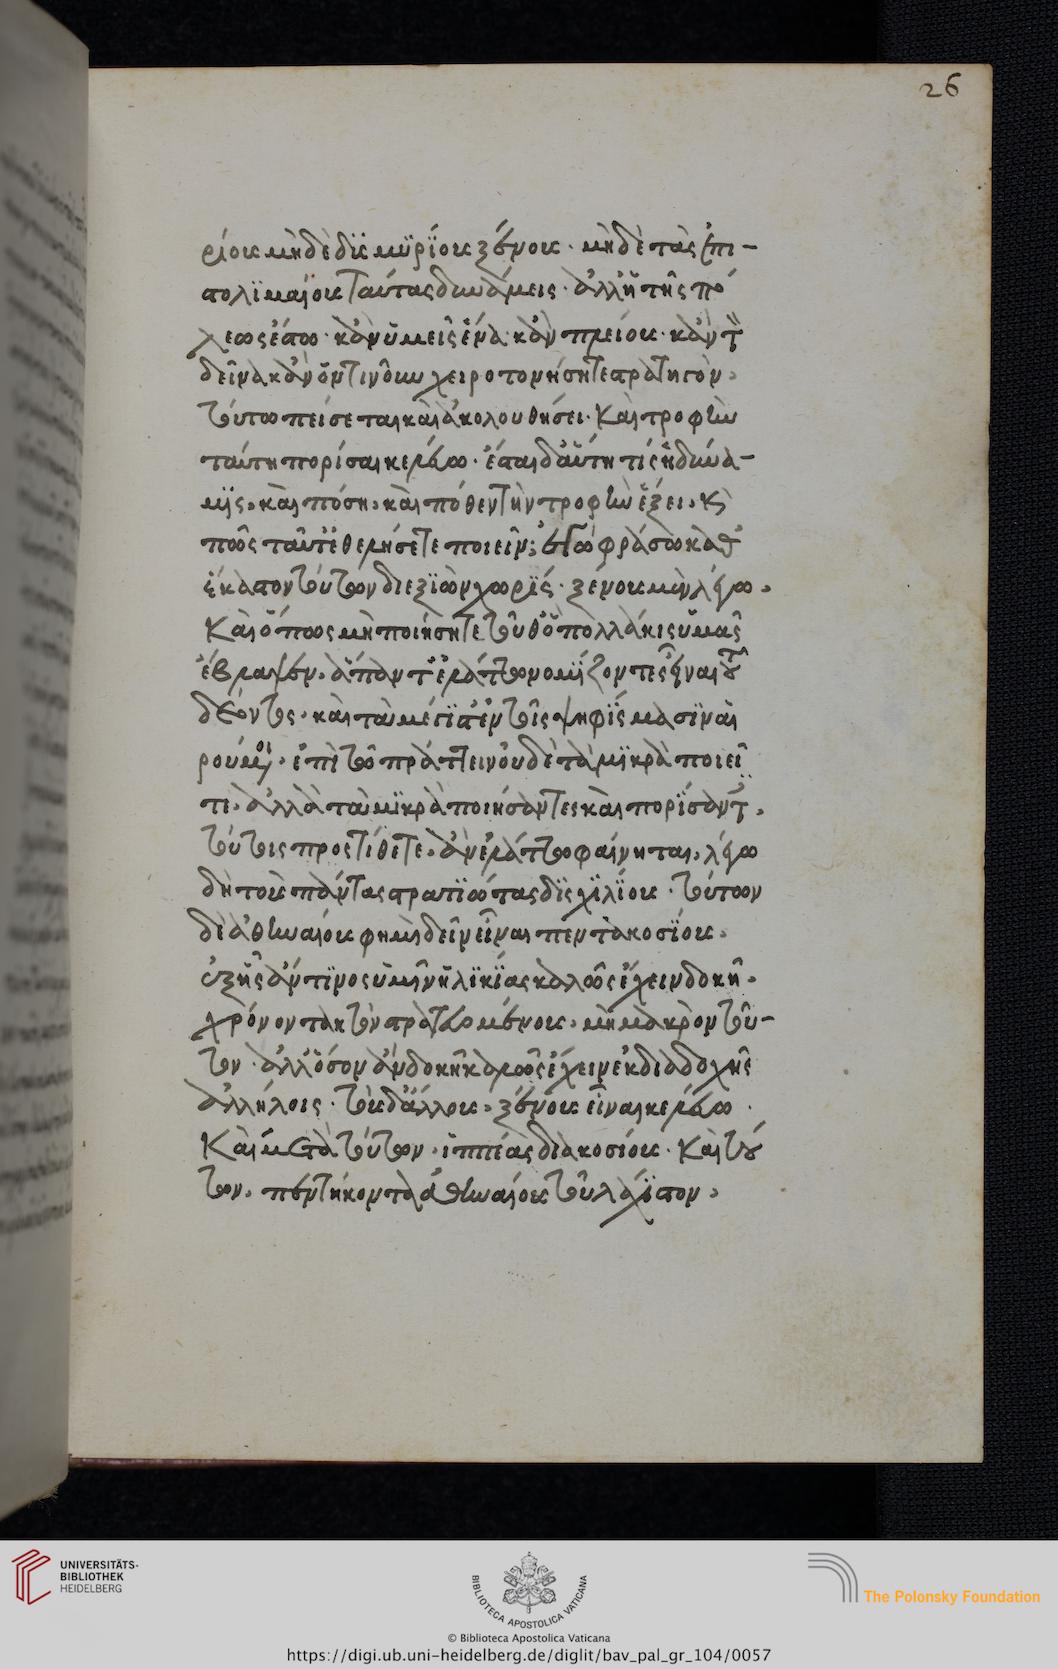 26
ρίους μηδὲ δὶς μυρίους ξένους · μηδὲ τὰς ἐπι-
στολιμαίους ταύτας δυνάμεις · ἀλλ' ἣ τῆς πό
λεως ἔσται · κἂν ὑμεῖς ἕνα · κἂν πλείους · κἂν τὸν
δεῖνα κἂν ὁντινοῦν χειροτονήσητε στρατηγὸν ·
τούτω πείσεται καὶ ἀκολουθήσει · Καὶ τροφὴν
ταύτη πορίσαι κελεύω · ἔσται δ' αὕτη τίς ἡ δύνα-
μις, καὶ πόση, καὶ πόθεν τὴν τροφὴν ἕξει, καὶ
πῶς ταῦτ' ἐθελήσετε ποιεῖν; ἐγὼ φράσω καθ'
ἕκαστον τούτων διεξιὼν χωρίς · ξένους μὲν λέγω,
Καὶ ὅπως μὴ ποιήσητε τοῦθ' ὃ πολλάκις ὑμᾶς
ἔβλαψεν, ἅπαντ' ἐλάττω νομίζοντες εἶναι τοῦ
δέοντος · καὶ τὰ μέγιστ' ἐν τοῖς ψηφίσμασιν αἱ
ρούμενοι · ἐπὶ τῶ πράττειν οὐδὲ τὰ μικρὰ ποιεῖ
τε, ἀλλὰ τὰ μικρὰ ποιήσαντες καὶ πορίσαντες,
τούτοις προστίθετε, ἂν ἐλάττω φαίνηται, λέγω
δὴ τοὺς πάντας στρατιώτας δισχιλίους · τούτων
δὲ ἀθηναίους φημὶ δεῖν εἶναι πεντακοσίους,
ἐξ ἧς ἄν τινος ὑμῖν ἡλικίας καλῶς ἔχειν δοκῆ,
χρόνον τακτὸν στρατευομένους, μὴ μακρὸν τοῦ-
τον · ἀλλ' ὅσον ἂν δοκῆ καλῶς ἔχειν ἐκ διαδοχῆς
ἀλλήλοις · τοὺς δ' ἄλλους, ξένους εἶναι κελεύω ·
Καὶ μετὰ τούτων · ἱππέας διακοσίους · Καὶ τού
των, πεντήκοντα ἀθηναίους τοὐλάχιστον,
UNIVERSITÄTS-
BIBLIOTHEK
HEIDELBERG
BIBLIOTECA APOSTOLICA VATICANA
The Polonsky Foundation
© Biblioteca Apostolica Vaticana
https://digi.ub.uni-heidelberg.de/diglit/bav_pal_gr_104/0057